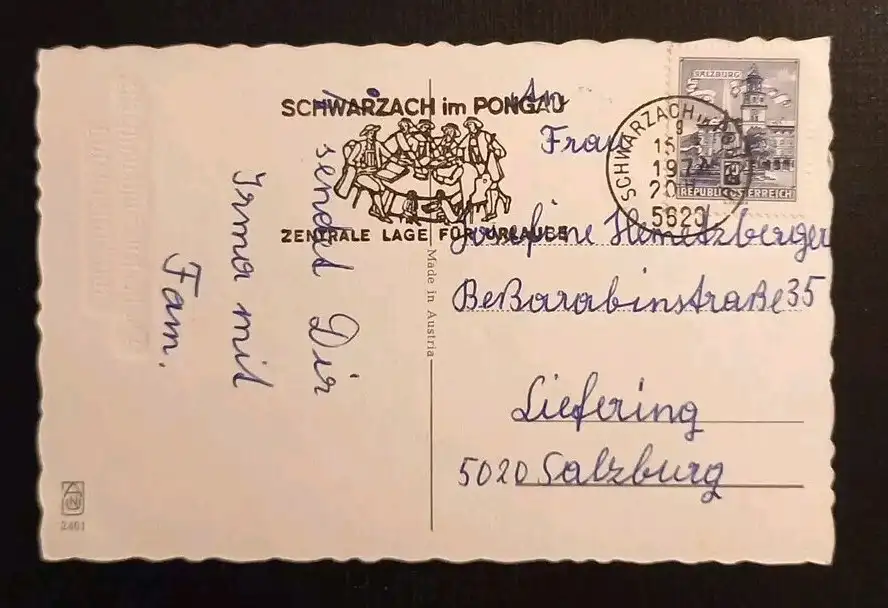 SCHWARZACH im PONGAU
ZENTRALE LAGE FÜR URLAUBE
sendet Dir
Irma mit
Fam.
Made in Austria
2461
SALZBURG
REPUBLIK ÖSTERREICH
SCHWARZACH im
g
15
197
20
5620
An
Frau
Josefine Hemetzberger
Beßarabinstraße 35
Liefering
5020 Salzburg